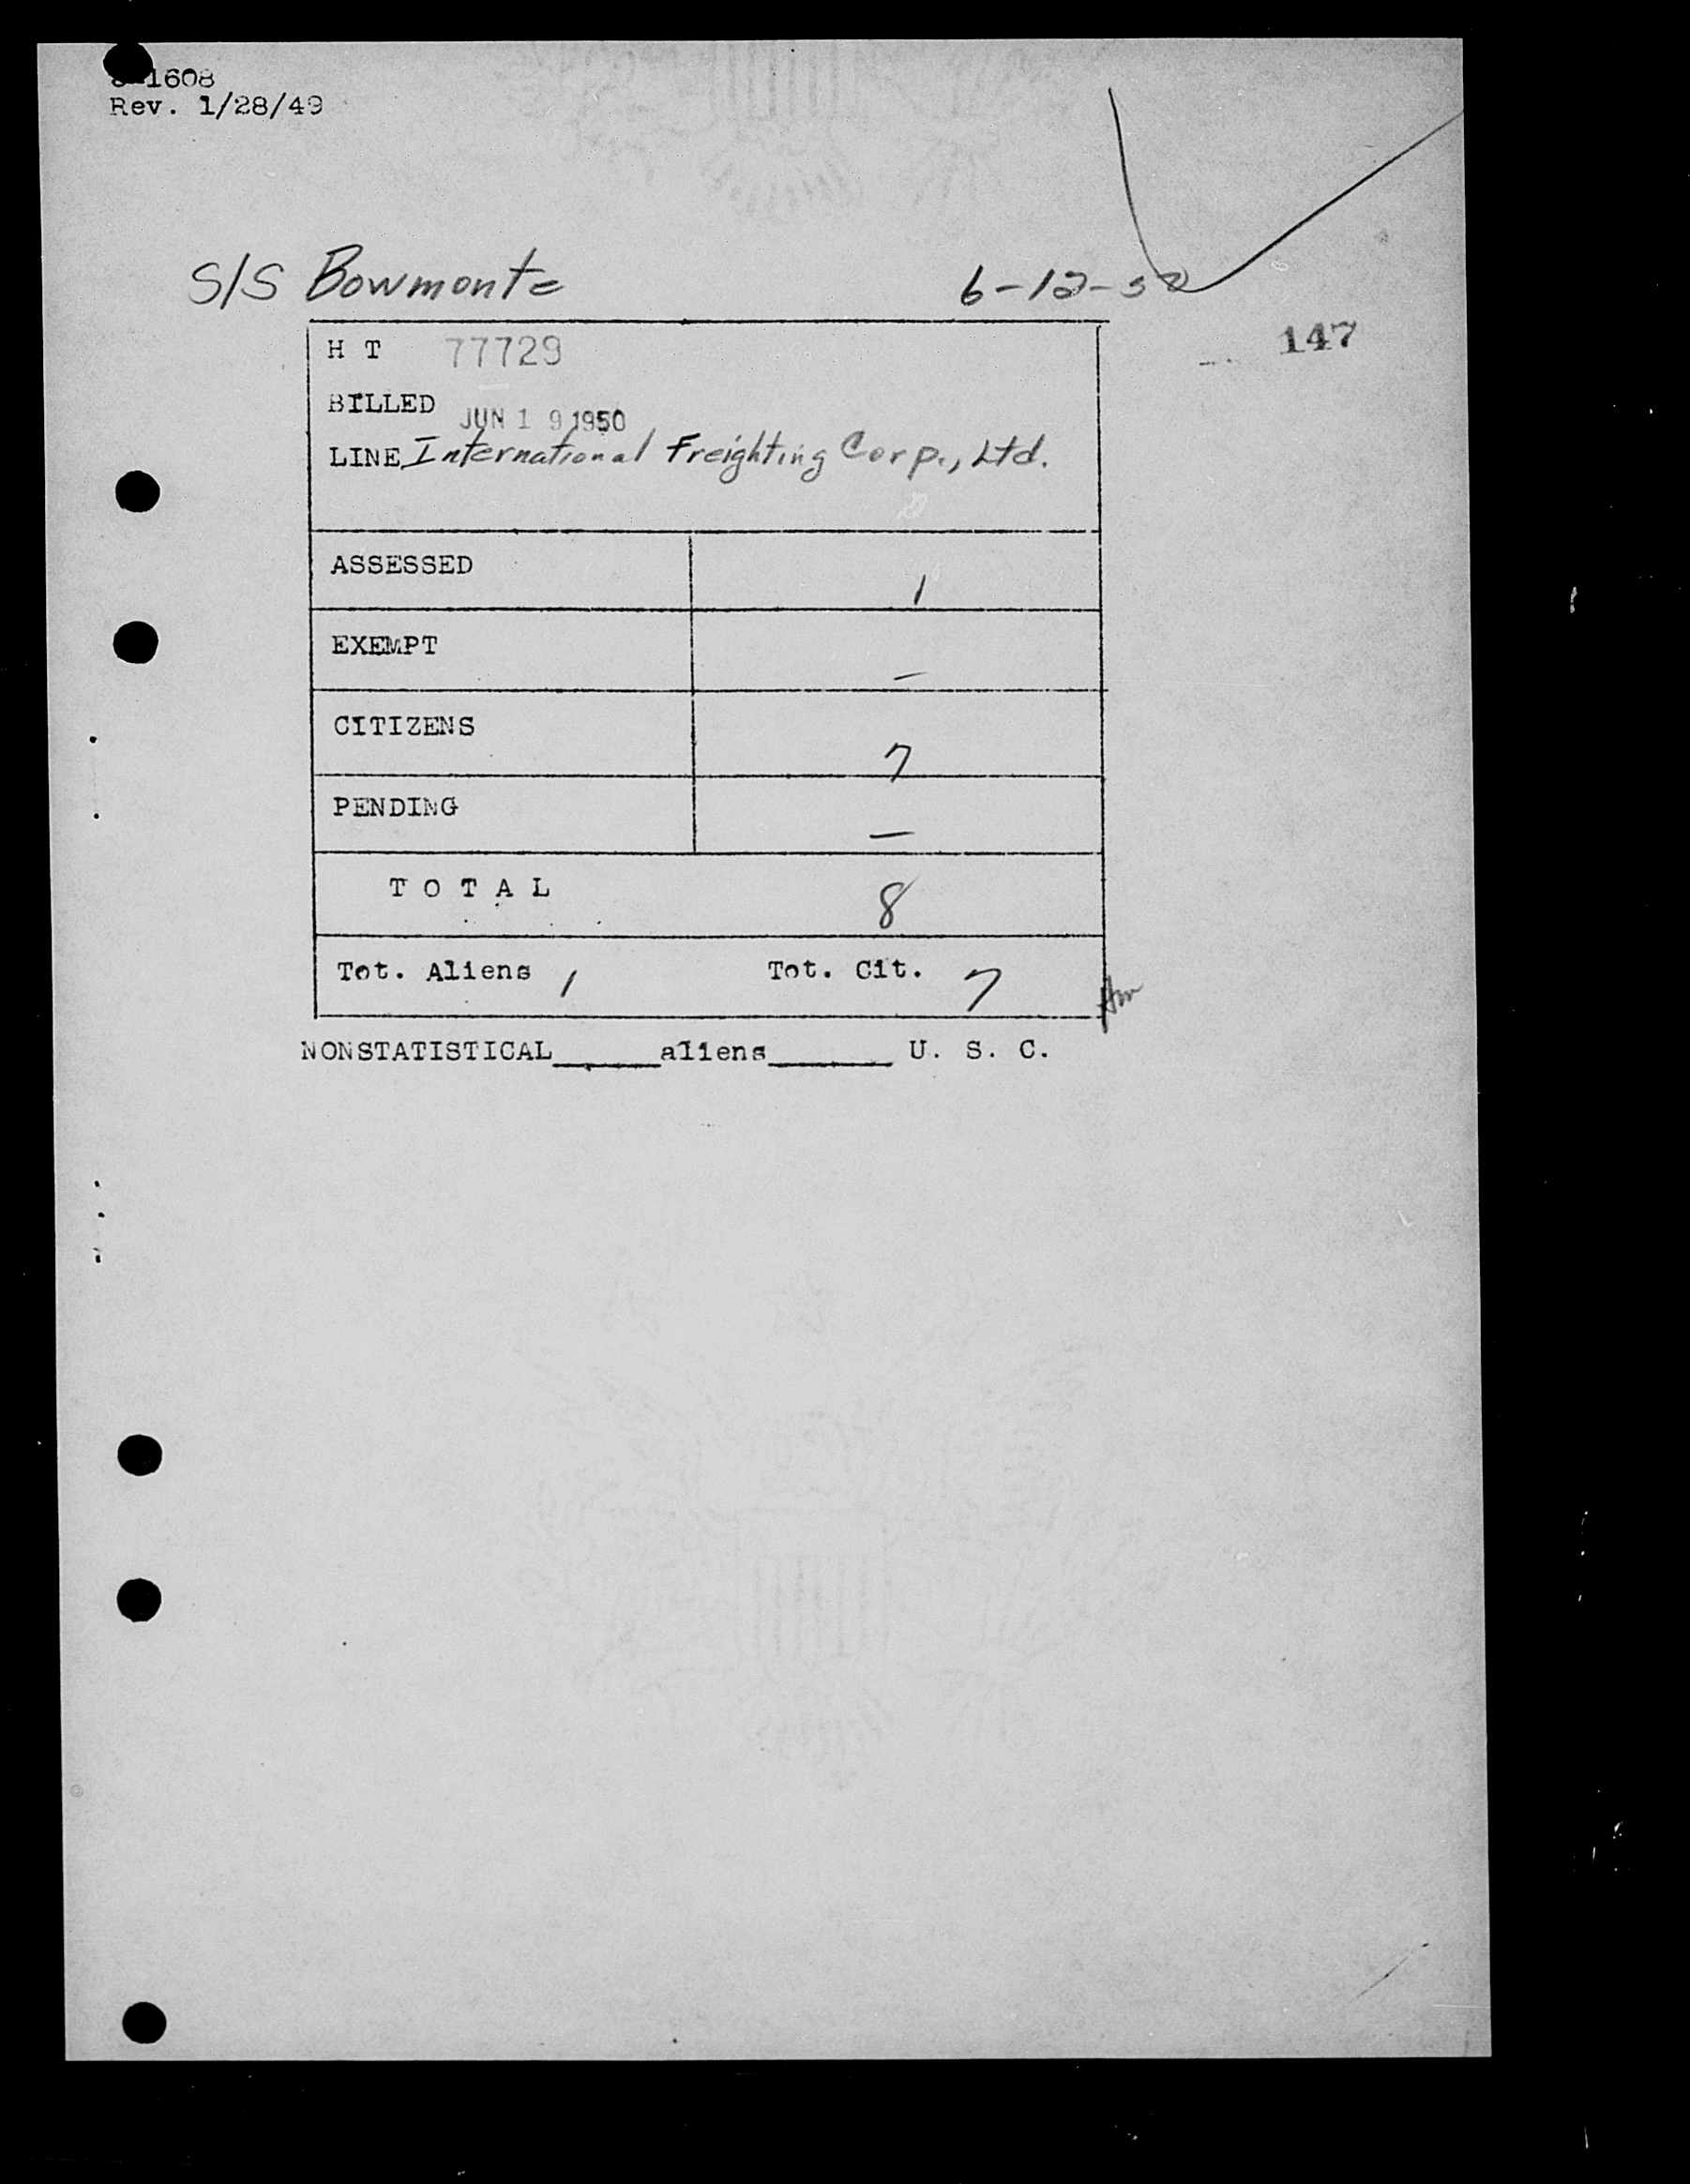 1608
Rev. 1/28/49
S/S Bowmonte 6-12-50
147
H T 77729
BILLED JUN 19 1950
LINE International Freighting Corp., Ltd.
ASSESSED 1
EXEMPT —
CITIZENS 7
PENDING —
T O T A L 8
Tot. Aliens 1 Tot. Cit. 7
NONSTATISTICAL______aliens_______ U. S. C.